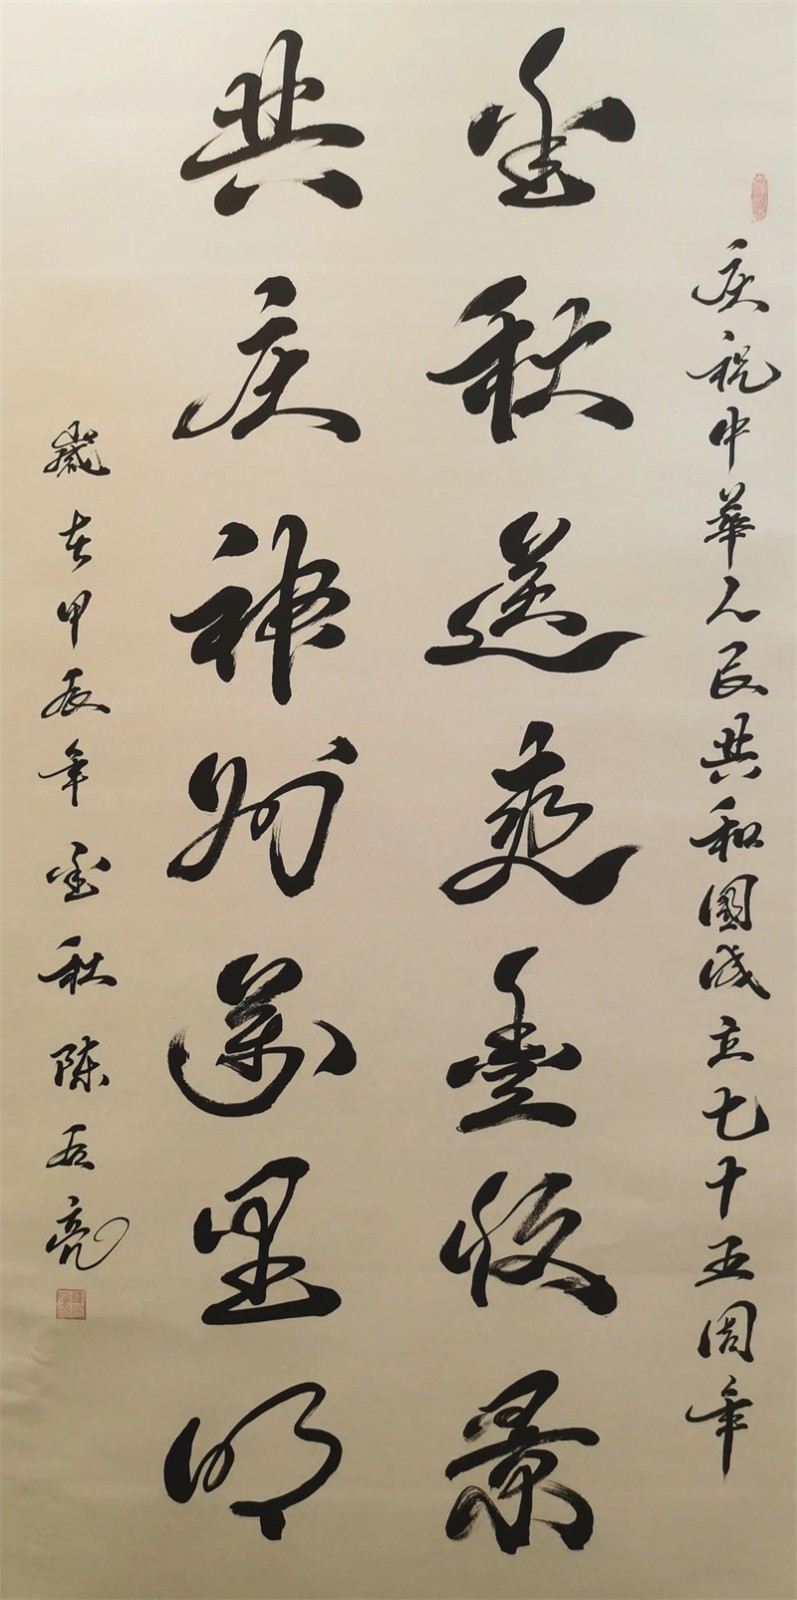 庆祝中華人民共和國成立七十五周年
金秋送爽豐收景
共庆神州萬里明
歲在甲辰年金秋陈亮